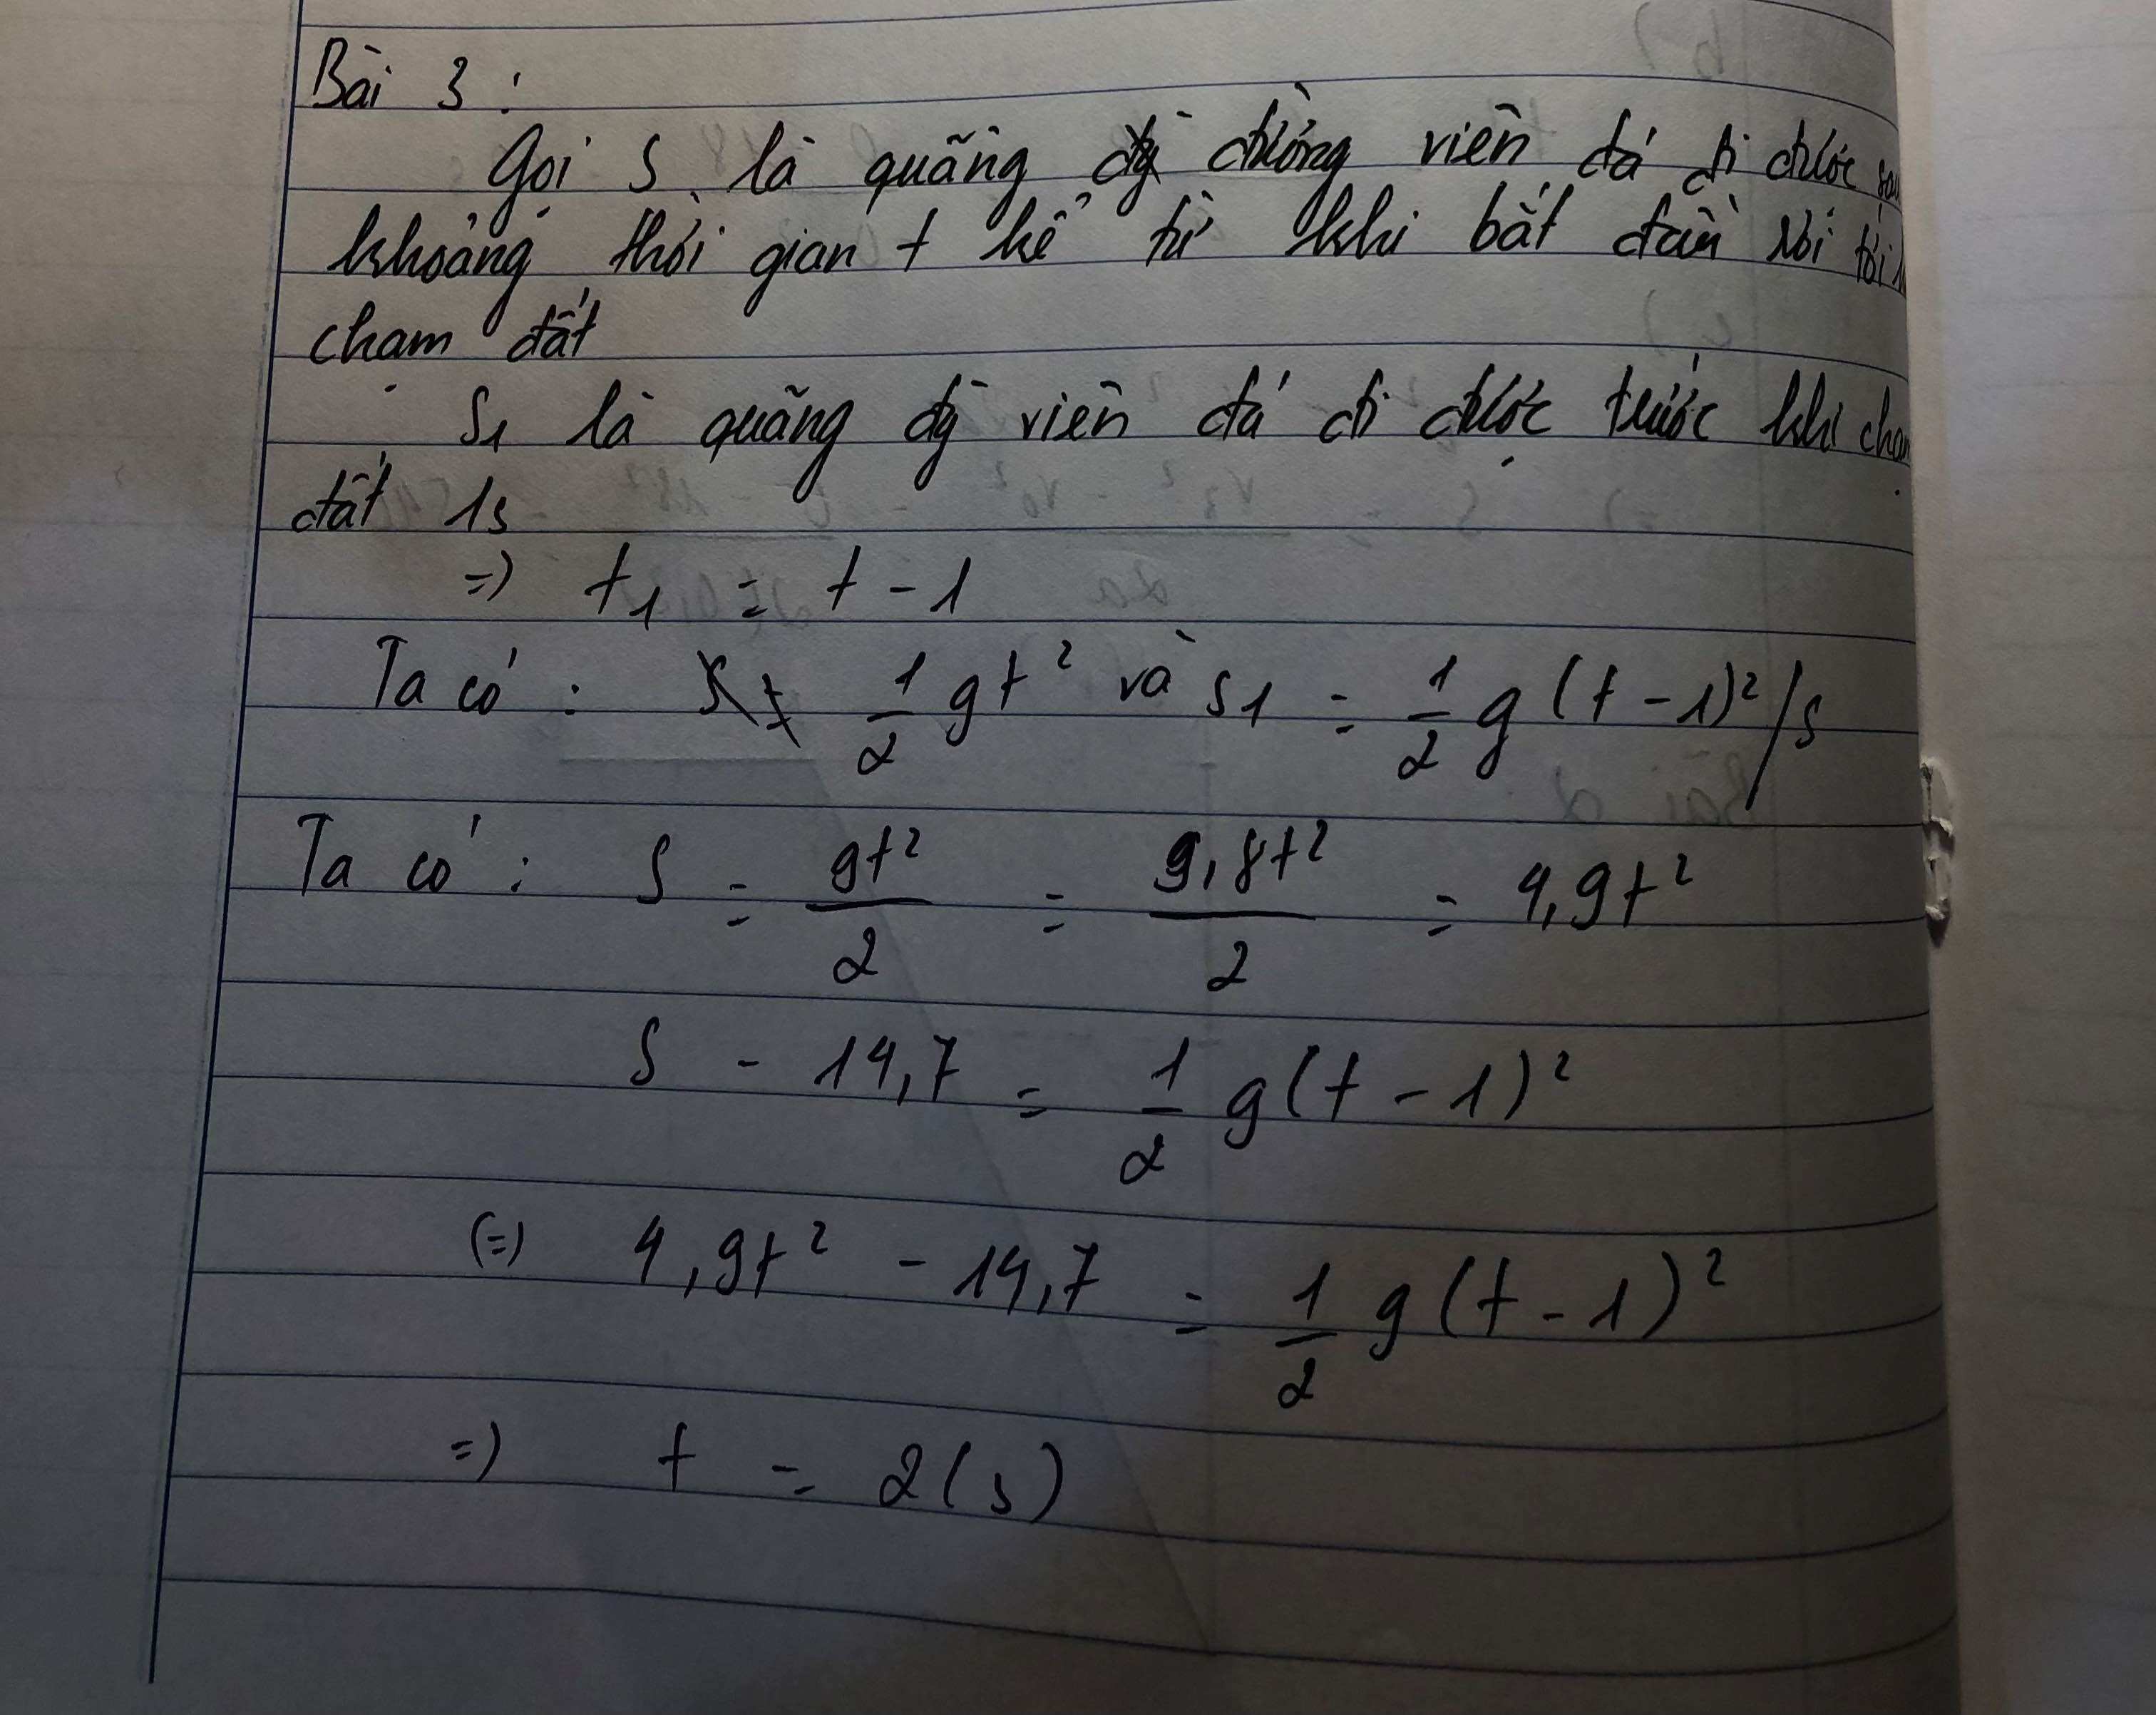 Bài 3 :
Gọi S là quãng đường viên đá đi được sau
khoảng thời gian t kể từ khi bắt đầu rơi tới
chạm đất
S1 là quãng đg viên đá đi được trước khi chạm
đất 1s
=) t1 = t - 1
Ta có : 1/2 gt² và s1 = 1/2 g (t - 1)² / s
Ta có : S = gt²/2 = 9,8t²/2 = 4,9t²
S - 14,7 = 1/2 g(t - 1)²
(=) 4,9t² - 14,7 = 1/2 g(t - 1)²
=) t = 2(s)